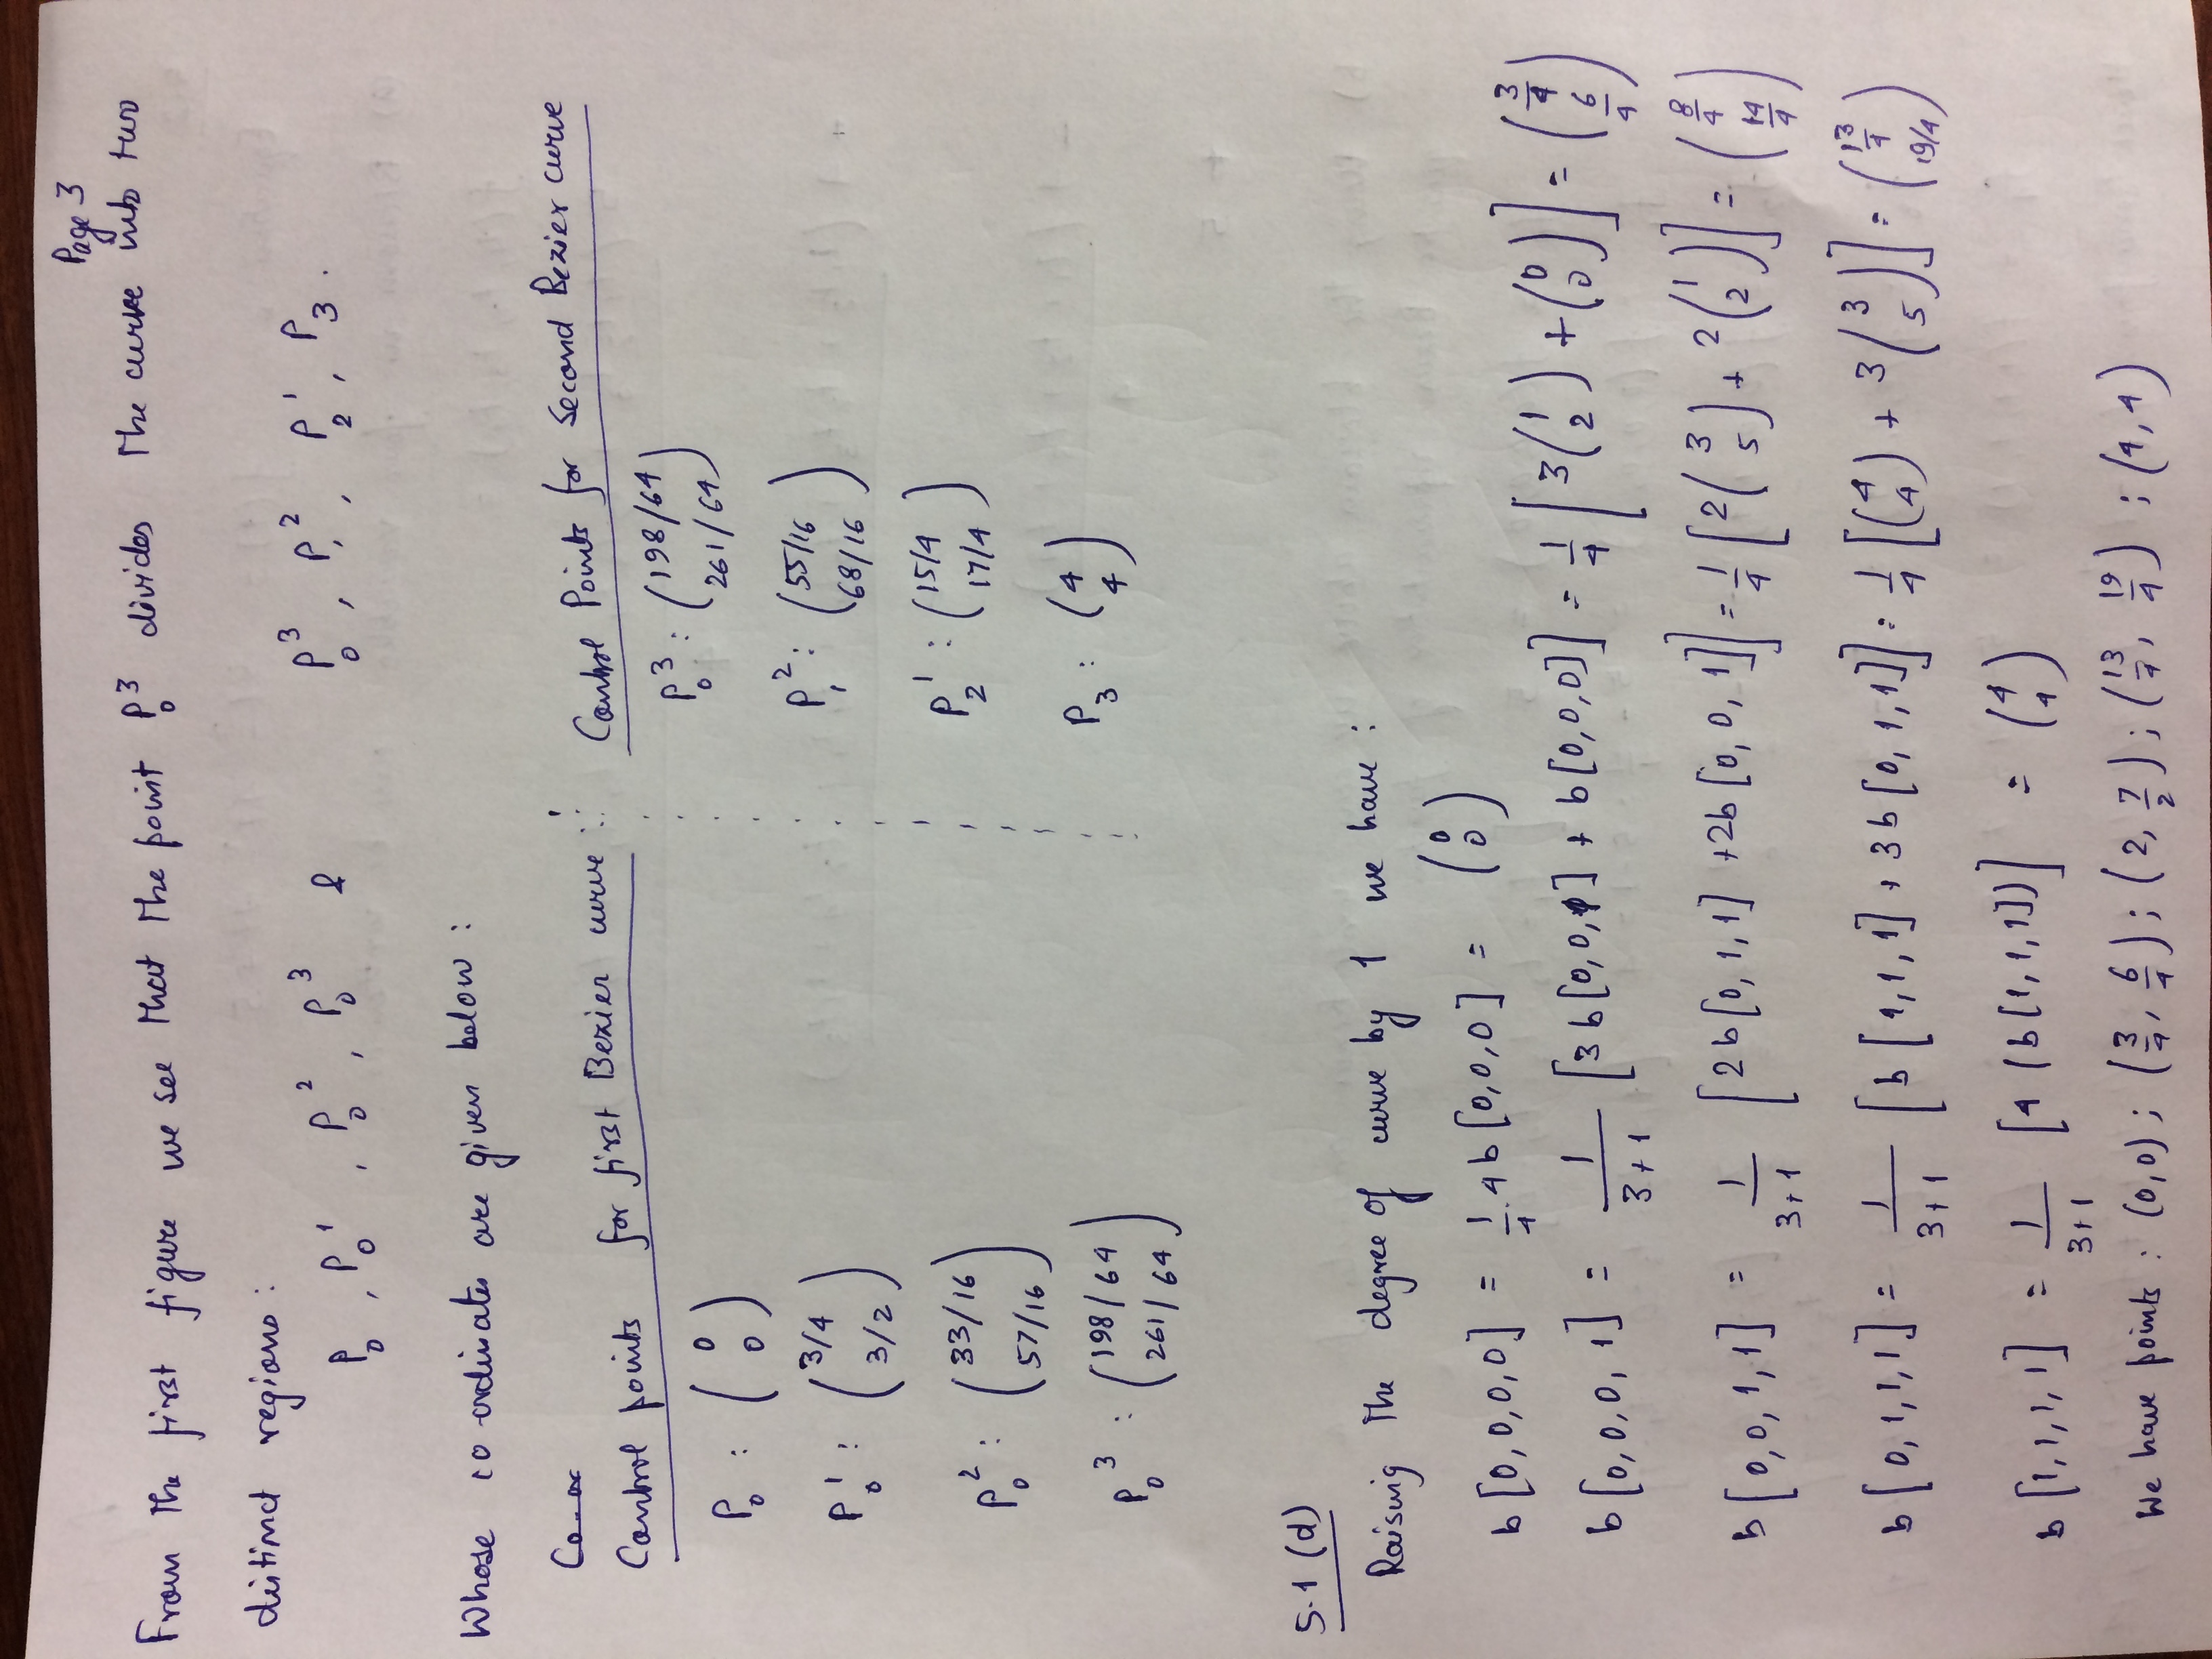 Page 3
From the first figure we see that the point P₀³ divides the curve into two
distinct regions:
P₀, P₀¹, P₀², P₀³ & P₀³, P₁², P₂¹, P₃.
Whose co-ordinates are given below:
Co-or
Control points for first Bezier curve : Control Points for second Bezier curve
P₀ : (0 0) P₀³ : (198/64 261/64)
P₀¹ : (3/4 3/2) P₁² : (55/16 68/16)
P₀² : (33/16 57/16) P₂¹ : (15/4 17/4)
P₀³ : (198/64 261/64) P₃ : (4 4)
5.1 (d)
Raising the degree of curve by 1 we have :
b[0,0,0,0] = 1/4 . 4b[0,0,0] = (0 0)
b[0,0,0,1] = 1/(3+1) [3b[0,0,1] + b[0,0,0]] = 1/4 [3(1 2) + (0 0)] = (3/4 6/4)
b[0,0,1,1] = 1/(3+1) [2b[0,1,1] + 2b[0,0,1]] = 1/4 [2(3 5) + 2(1 2)] = (8/4 14/4)
b[0,1,1,1] = 1/(3+1) [b[1,1,1] + 3b[0,1,1]] = 1/4 [(4 4) + 3(3 5)] = (13/4 19/4)
b[1,1,1,1] = 1/(3+1) [4(b[1,1,1])] = (4 4)
We have points : (0,0) ; (3/4, 6/4) ; (2, 7/2) ; (13/4, 19/4) ; (4,4)